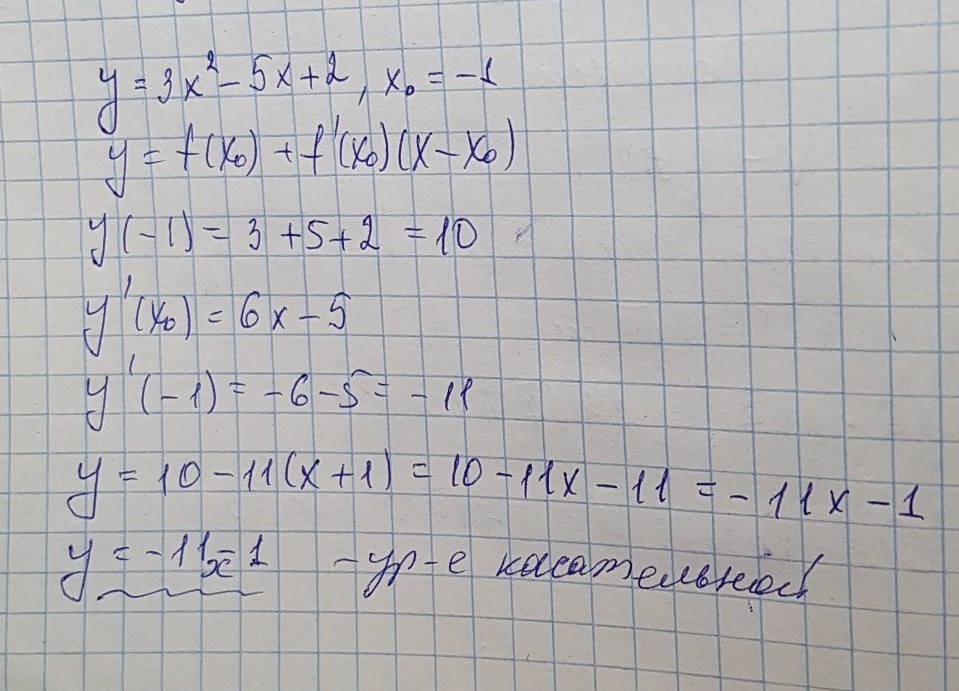 y = 3x² - 5x + 2, x₀ = -1
y = f(x₀) + f'(x₀)(x - x₀)
y(-1) = 3 + 5 + 2 = 10
y'(x₀) = 6x - 5
y'(-1) = -6 - 5 = -11
y = 10 - 11(x + 1) = 10 - 11x - 11 = -11x - 1
y = -11x - 1 - ур-е касательной